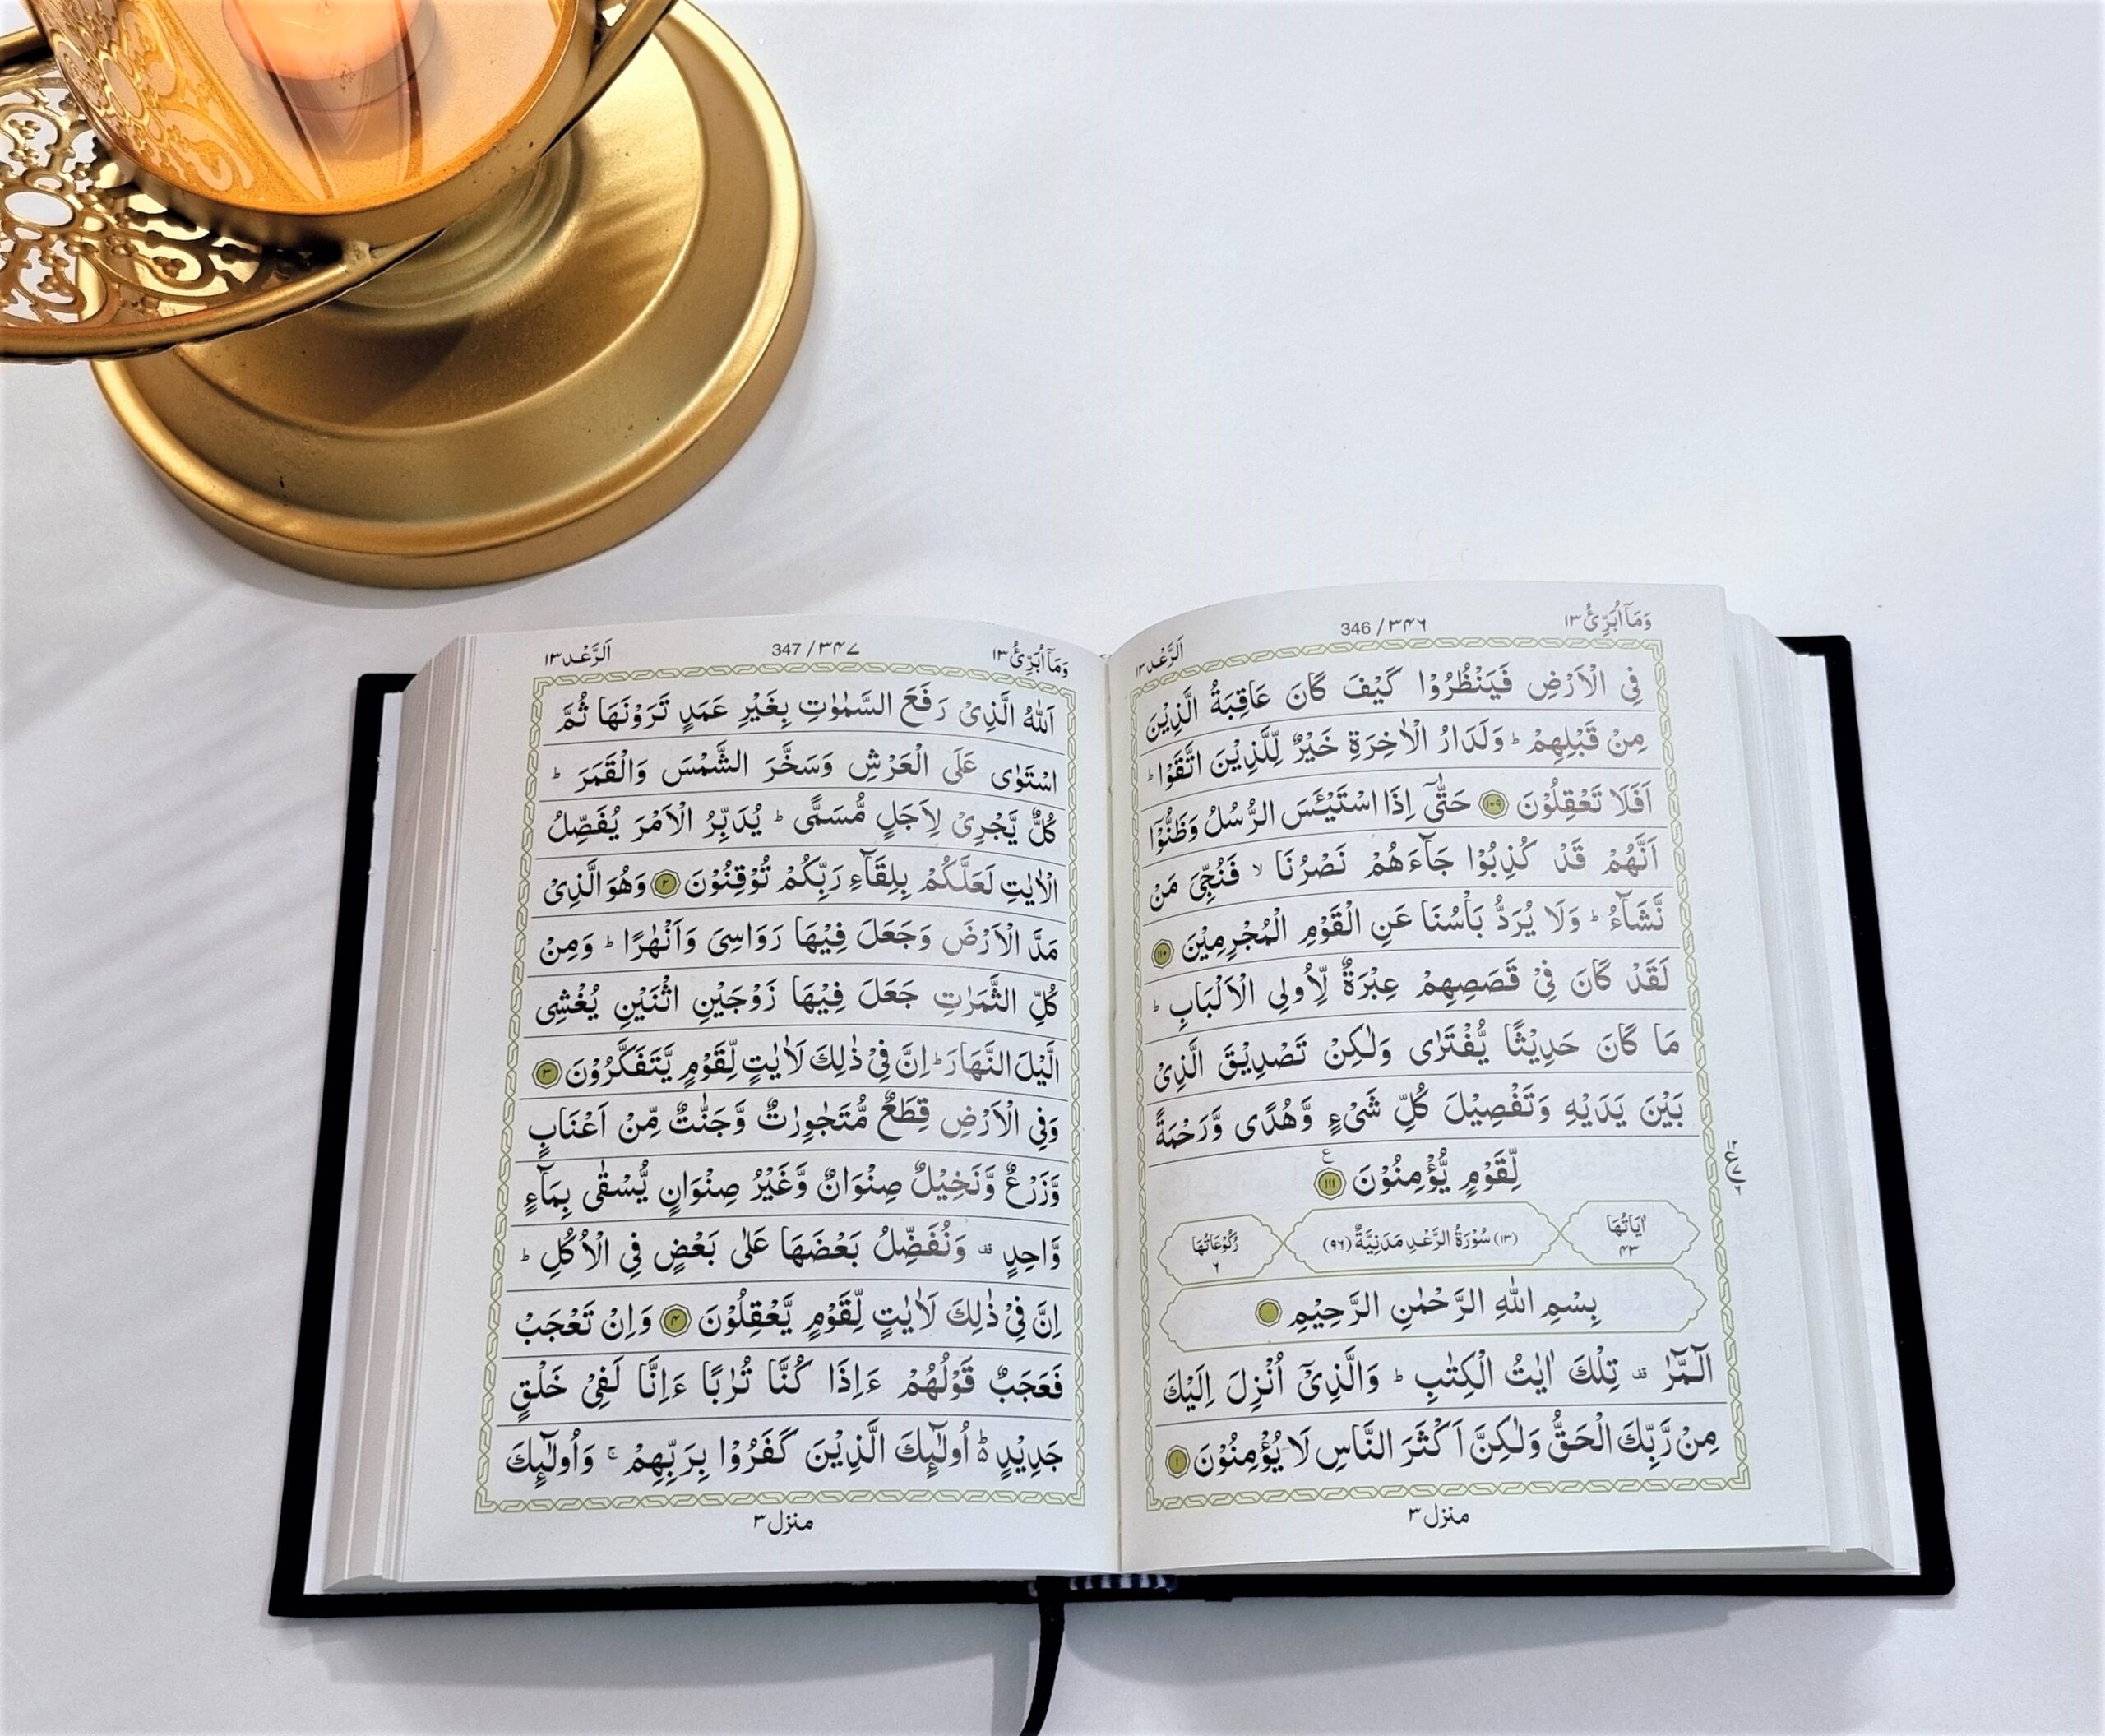 وَمَاۤ اُبَرِّئُ ١٣
346 / ۳۴۶
اَلرَّعْد ١٣
فِی الْاَرْضِ فَیَنْظُرُوْا كَیْفَ كَانَ عَاقِبَةُ الَّذِیْنَ
مِنْ قَبْلِهِمْ ؕ وَلَدَارُ الْاٰخِرَةِ خَیْرٌ لِّلَّذِیْنَ اتَّقَوْا ؕ
اَفَلَا تَعْقِلُوْنَ ۱۰۹ حَتّٰۤی اِذَا اسْتَیْـَٔسَ الرُّسُلُ وَظَنُّوْۤا
اَنَّهُمْ قَدْ كُذِبُوْا جَآءَهُمْ نَصْرُنَا ۙ فَنُجِّیَ مَنْ
نَّشَآءُ ؕ وَلَا یُرَدُّ بَاْسُنَا عَنِ الْقَوْمِ الْمُجْرِمِیْنَ ۱۱۰
لَقَدْ كَانَ فِیْ قَصَصِهِمْ عِبْرَةٌ لِّاُولِی الْاَلْبَابِ ؕ
مَا كَانَ حَدِیْثًا یُّفْتَرٰی وَلٰكِنْ تَصْدِیْقَ الَّذِیْ
بَیْنَ یَدَیْهِ وَتَفْصِیْلَ كُلِّ شَیْءٍ وَّهُدًی وَّرَحْمَةً
لِّقَوْمٍ یُّؤْمِنُوْنَ ۱۱۱
اٰیَاتُهَا ۴۳
(۱۳) سُوْرَةُ الرَّعْدِ مَدَنِیَّةٌ (۹۶)
رُكُوْعَاتُهَا ۶
بِسْمِ اللّٰهِ الرَّحْمٰنِ الرَّحِیْمِ
الٓمّٓرٰ ۫ تِلْكَ اٰیٰتُ الْكِتٰبِ ؕ وَالَّذِیْۤ اُنْزِلَ اِلَیْكَ
مِنْ رَّبِّكَ الْحَقُّ وَلٰكِنَّ اَكْثَرَ النَّاسِ لَا یُؤْمِنُوْنَ ۱
منزل ۳
وَمَاۤ اُبَرِّئُ ١٣
347 / ۳۴۷
اَلرَّعْد ١٣
اَللّٰهُ الَّذِیْ رَفَعَ السَّمٰوٰتِ بِغَیْرِ عَمَدٍ تَرَوْنَهَا ثُمَّ
اسْتَوٰی عَلَی الْعَرْشِ وَسَخَّرَ الشَّمْسَ وَالْقَمَرَ ؕ
كُلٌّ یَّجْرِیْ لِاَجَلٍ مُّسَمًّی ؕ یُدَبِّرُ الْاَمْرَ یُفَصِّلُ
الْاٰیٰتِ لَعَلَّكُمْ بِلِقَآءِ رَبِّكُمْ تُوْقِنُوْنَ ۲ وَهُوَ الَّذِیْ
مَدَّ الْاَرْضَ وَجَعَلَ فِیْهَا رَوَاسِیَ وَاَنْهٰرًا ؕ وَمِنْ
كُلِّ الثَّمَرٰتِ جَعَلَ فِیْهَا زَوْجَیْنِ اثْنَیْنِ یُغْشِی
الَّیْلَ النَّهَارَ ؕ اِنَّ فِیْ ذٰلِكَ لَاٰیٰتٍ لِّقَوْمٍ یَّتَفَكَّرُوْنَ ۳
وَفِی الْاَرْضِ قِطَعٌ مُّتَجٰوِرٰتٌ وَّجَنّٰتٌ مِّنْ اَعْنَابٍ
وَّزَرْعٌ وَّنَخِیْلٌ صِنْوَانٌ وَّغَیْرُ صِنْوَانٍ یُّسْقٰی بِمَآءٍ
وَّاحِدٍ ۫ وَنُفَضِّلُ بَعْضَهَا عَلٰی بَعْضٍ فِی الْاُكُلِ ؕ
اِنَّ فِیْ ذٰلِكَ لَاٰیٰتٍ لِّقَوْمٍ یَّعْقِلُوْنَ ۴ وَاِنْ تَعْجَبْ
فَعَجَبٌ قَوْلُهُمْ ءَاِذَا كُنَّا تُرٰبًا ءَاِنَّا لَفِیْ خَلْقٍ
جَدِیْدٍ ؕ۬ اُولٰٓئِكَ الَّذِیْنَ كَفَرُوْا بِرَبِّهِمْ ۚ وَاُولٰٓئِكَ
منزل ۳